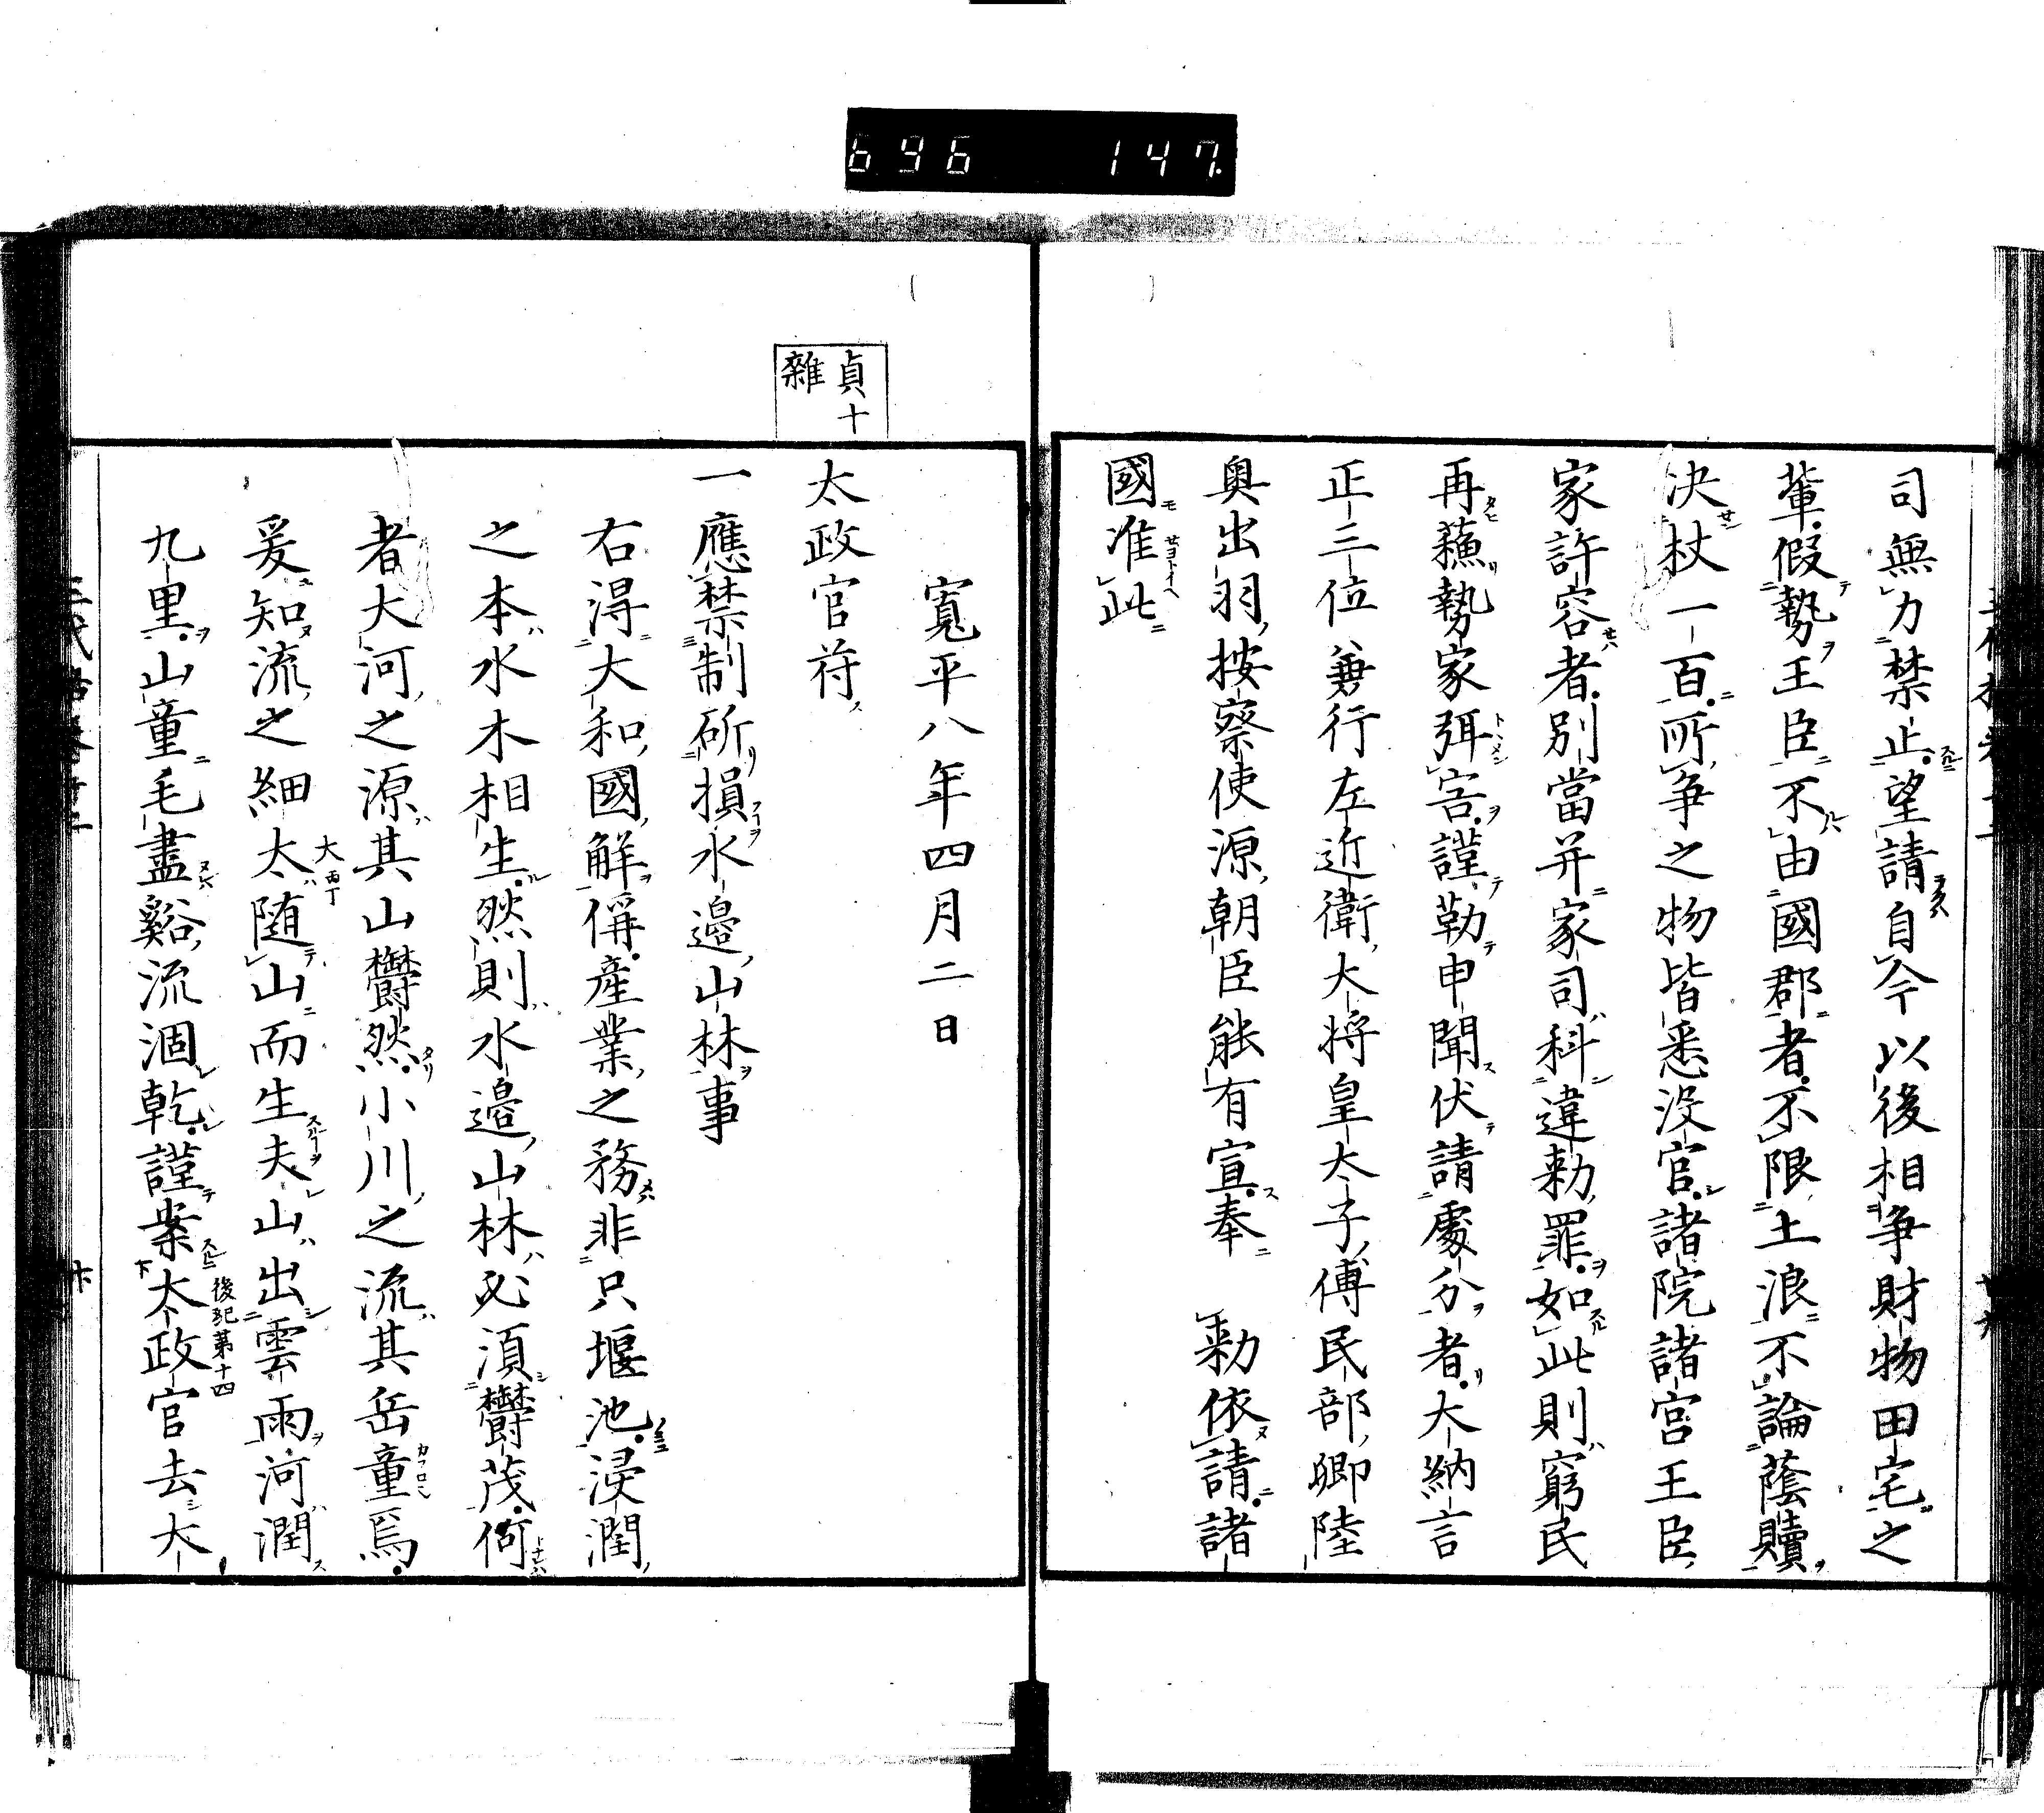 696 147
司無力禁止望請自今以後相争財物田宅之
輩假勢王臣不由國郡者不限土浪不論蔭贖
决杖一百所争之物皆悉没官諸院諸宮王臣
家許容者別當并家司科違勅罪如此則窮民
再蘓勢家弭害謹勒申聞伏請處分者大納言
正三位兼行左近衛大将皇太子傅民部卿陸
奥出羽按察使源朝臣能有宣奉　勅依請諸
國准此
寛平八年四月二日
貞十
雜
太政官符
一應禁制斫損水邉山林事
右得大和國解偁産業之務非只堰池浸潤
之本水木相生然則水邉山林必須欝茂何
者大河之源其山欝然小川之流其岳童焉
爰知流之細太随山而生夫山出雲雨河潤
大丙丁
九里山童毛盡谿流涸乾謹案太政官去大
後紀第十四